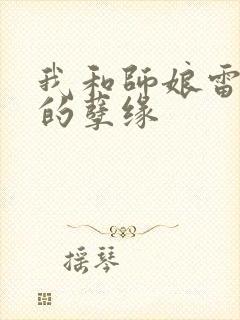 我和師娘雷
的孽缘
摇琴